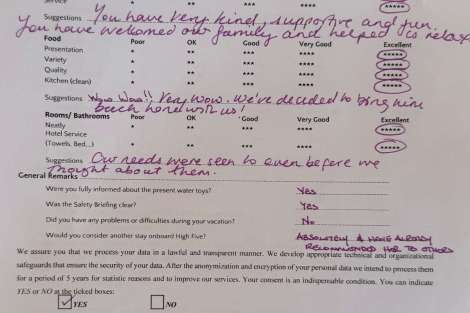 Service * ** *** **** *****
Suggestions You have very kind, supportive and fun.
You have welcomed our family and helped us relax
Food Poor OK Good Very Good Excellent
Presentation * ** *** **** *****
Variety * ** *** **** *****
Quality * ** *** **** *****
Kitchen (clean) * ** *** **** *****
Suggestions Wow Wow!! Very Wow. We've decided to bring
home with us!
Rooms/ Bathrooms Poor OK Good Very Good Excellent
Neatly * ** *** **** *****
Hotel Service
(Towels, Bed,..) * ** *** **** *****
Suggestions Our needs were seen to even before we
thought about them.
General Remarks
Were you fully informed about the present water toys? Yes
Was the Safety Briefing clear? Yes
Did you have any problems or difficulties during your vacation? No
Would you consider another stay onboard High Five? ABSOLUTELY & HAVE ALREADY
RECOMMENDED HER TO OTHERS
We assure you that we process your data in a lawful and transparent manner. We develop appropriate technical and organizational
safeguards that ensure the security of your data. After the anonymization and encryption of your personal data we intend to process them
for a period of 5 years for statistic reasons and to improve our services. Your consent is an indispensable condition. You can indicate
YES or NO at the ticked boxes:
YES NO